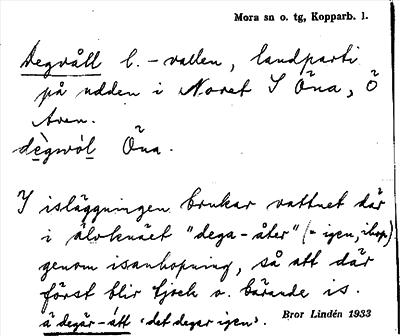 Mora sn o. tg, Kopparb. l.
Degvåll l. -vallen, landparti
på udden i Noret S Öna, Ö
Åven.
dègwòl Öna.
I isläggningen brukar vattnet där
i älvknäet "dega-åter" (= igen, ihop)
genom isanhopning, så att där
först blir tjock o. bärande is.
ä degär-átt ‹det degar igen›.
Bror Lindén 1933